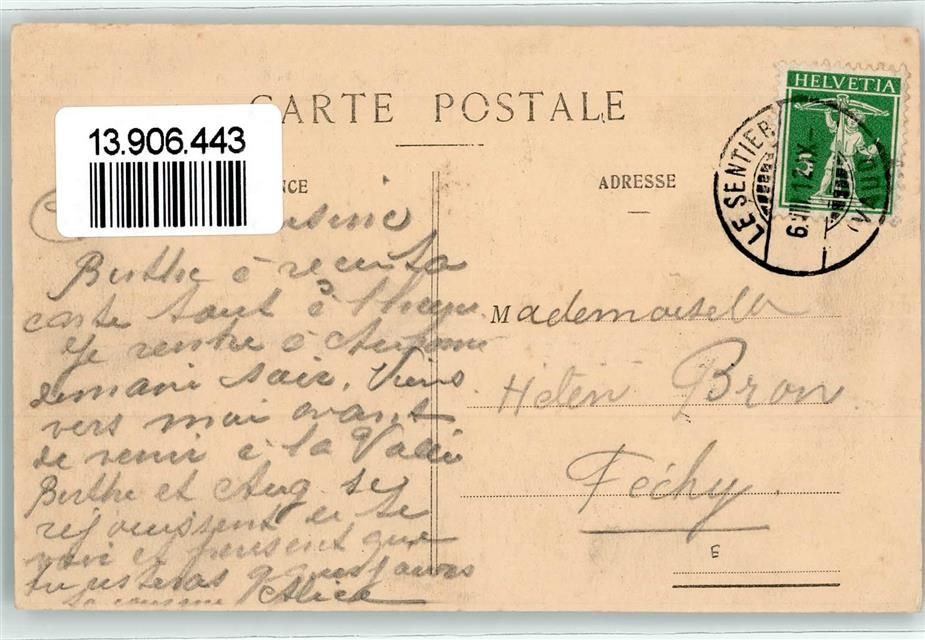 CARTE POSTALE
13.906.443
NCE
ADRESSE
HELVETIA
5
LE SENTIER
6.VIII.12.IX-
Berthe à reçu ta
carte tout à l'heure.
Je rentre à
demain soir. Viens
vers moi avant
de venir à la Vallée
Berthe et Aug. se
réjouissent de te
voir et pensent que
tu resteras q.ques jours
Ta cousine Alice
Mademoiselle
Hélèn Bron
Féchy
E